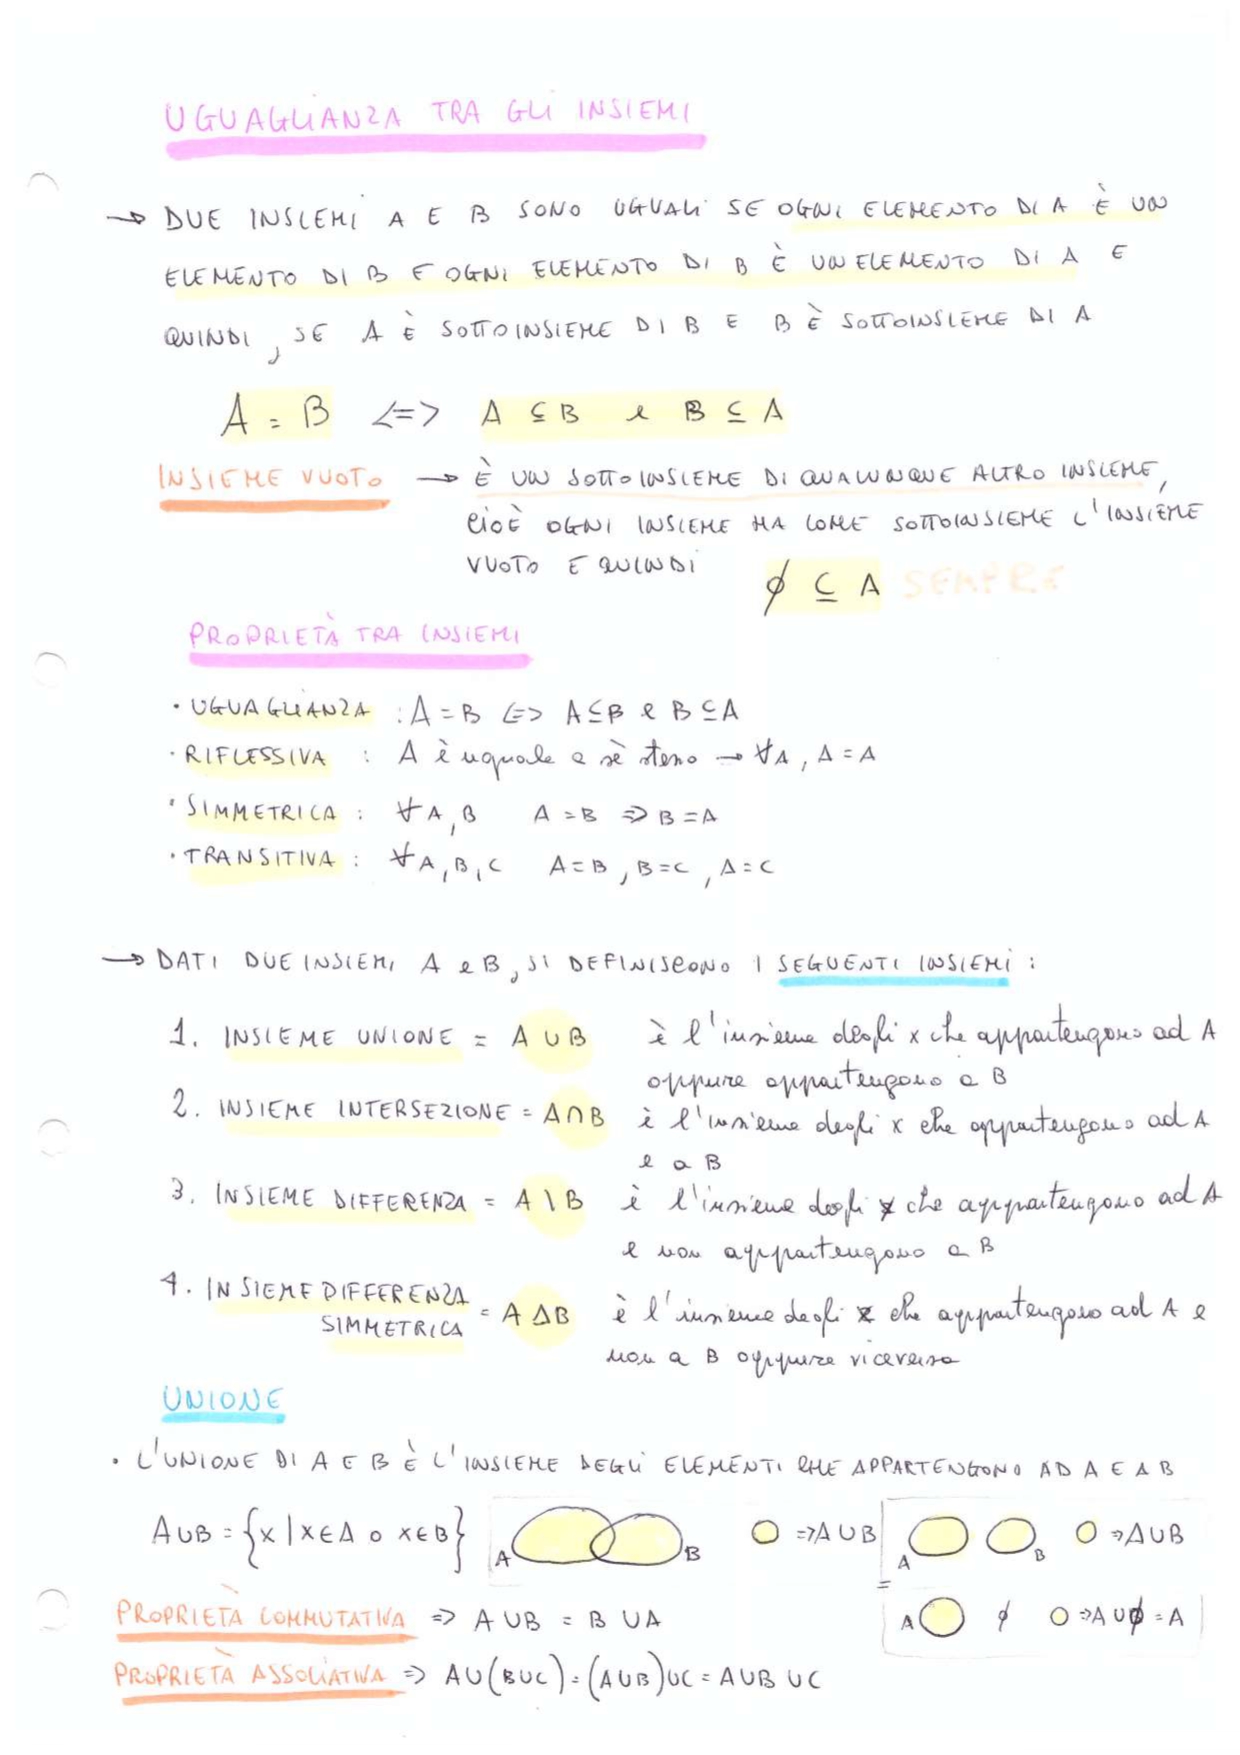 UGUAGLIANZA TRA GLI INSIEMI
→ DUE INSIEMI A E B SONO UGUALI SE OGNI ELEMENTO DI A È UN
ELEMENTO DI B E OGNI ELEMENTO DI B È UN ELEMENTO DI A E
QUINDI, SE A È SOTTOINSIEME DI B E B È SOTTOINSIEME DI A
A = B <=> A ⊆ B e B ⊆ A
INSIEME VUOTO → È UN SOTTOINSIEME DI QUALUNQUE ALTRO INSIEME,
CIOÈ OGNI INSIEME HA COME SOTTOINSIEME L'INSIEME
VUOTO E QUINDI ∅ ⊆ A SEMPRE
PROPRIETÀ TRA INSIEMI
· UGUAGLIANZA : A = B <=> A ⊆ B e B ⊆ A
· RIFLESSIVA : A è uguale a sè stesso → ∀A, A = A
· SIMMETRICA : ∀A, B A = B => B = A
· TRANSITIVA : ∀A, B, C A = B, B = C, A = C
→ DATI DUE INSIEMI A e B, SI DEFINISCONO I SEGUENTI INSIEMI :
1. INSIEME UNIONE = A ∪ B è l'insieme degli x che appartengono ad A
oppure appartengono a B
2. INSIEME INTERSEZIONE = A ∩ B è l'insieme degli x che appartengono ad A
e a B
3. INSIEME DIFFERENZA = A \ B è l'insieme degli x che appartengono ad A
e non appartengono a B
4. INSIEME DIFFERENZA
SIMMETRICA = A Δ B è l'insieme degli x che appartengono ad A e
non a B oppure viceversa
UNIONE
· L'UNIONE DI A E B È L'INSIEME DEGLI ELEMENTI CHE APPARTENGONO AD A E A B
A ∪ B = {x | x ∈ A o x ∈ B} A B => A ∪ B A B => A ∪ B
= A ∅ => A ∪ ∅ = A
PROPRIETÀ COMMUTATIVA => A ∪ B = B ∪ A
PROPRIETÀ ASSOCIATIVA => A ∪ (B ∪ C) = (A ∪ B) ∪ C = A ∪ B ∪ C